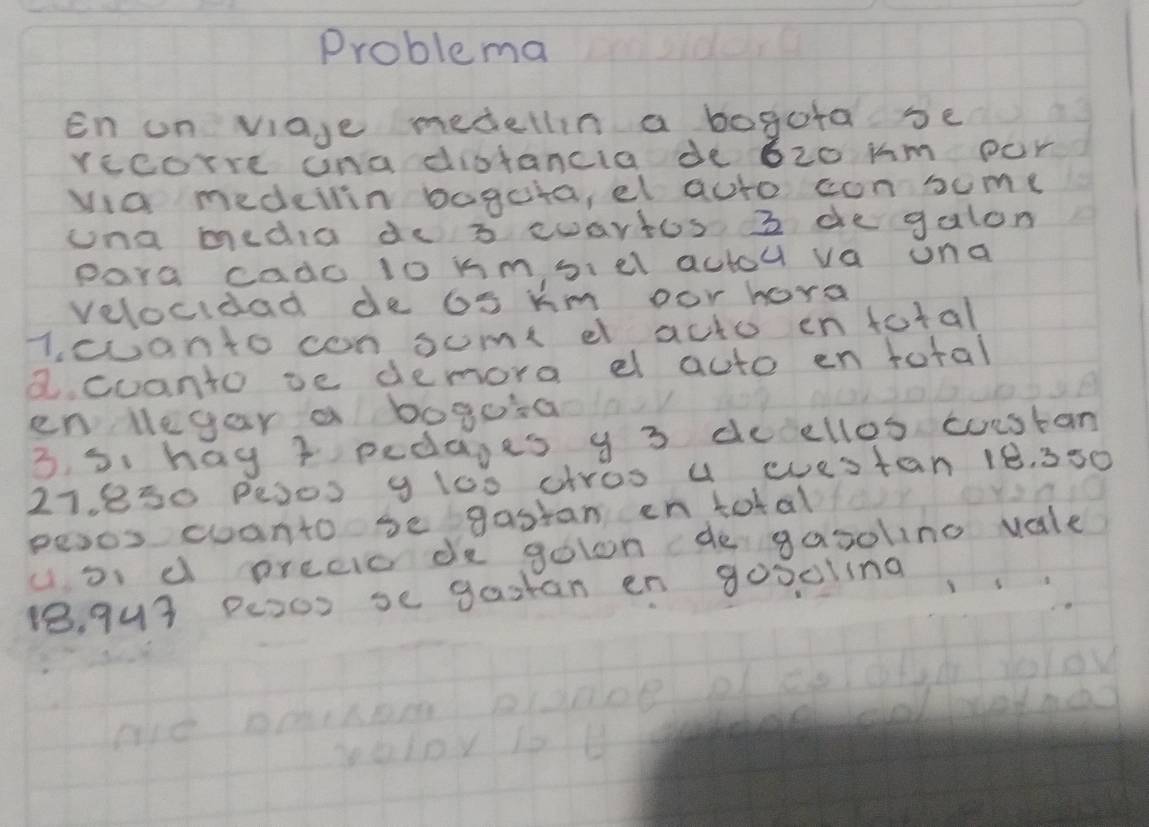 Problema
En un viaje medellin a bogota se
recorre una distancia de 620 km por
via medellin bogota, el auto consume
una media de 3 cuartos 3 de galon
para cada 10 km, si el auto va una
velocidad de 65 km por hora
1. cuanto consume el auto en total
2. cuanto se demora el auto en total
en llegar a bogota
3. si hay 7 pedajes y 3 de ellos cuestan
27.850 pesos y los otros 4 cuestan 18.350
pesos cuanto se gastan en total
4. si el precio de galon de gasolina vale
18.947 pesos se gastan en gasolina ...